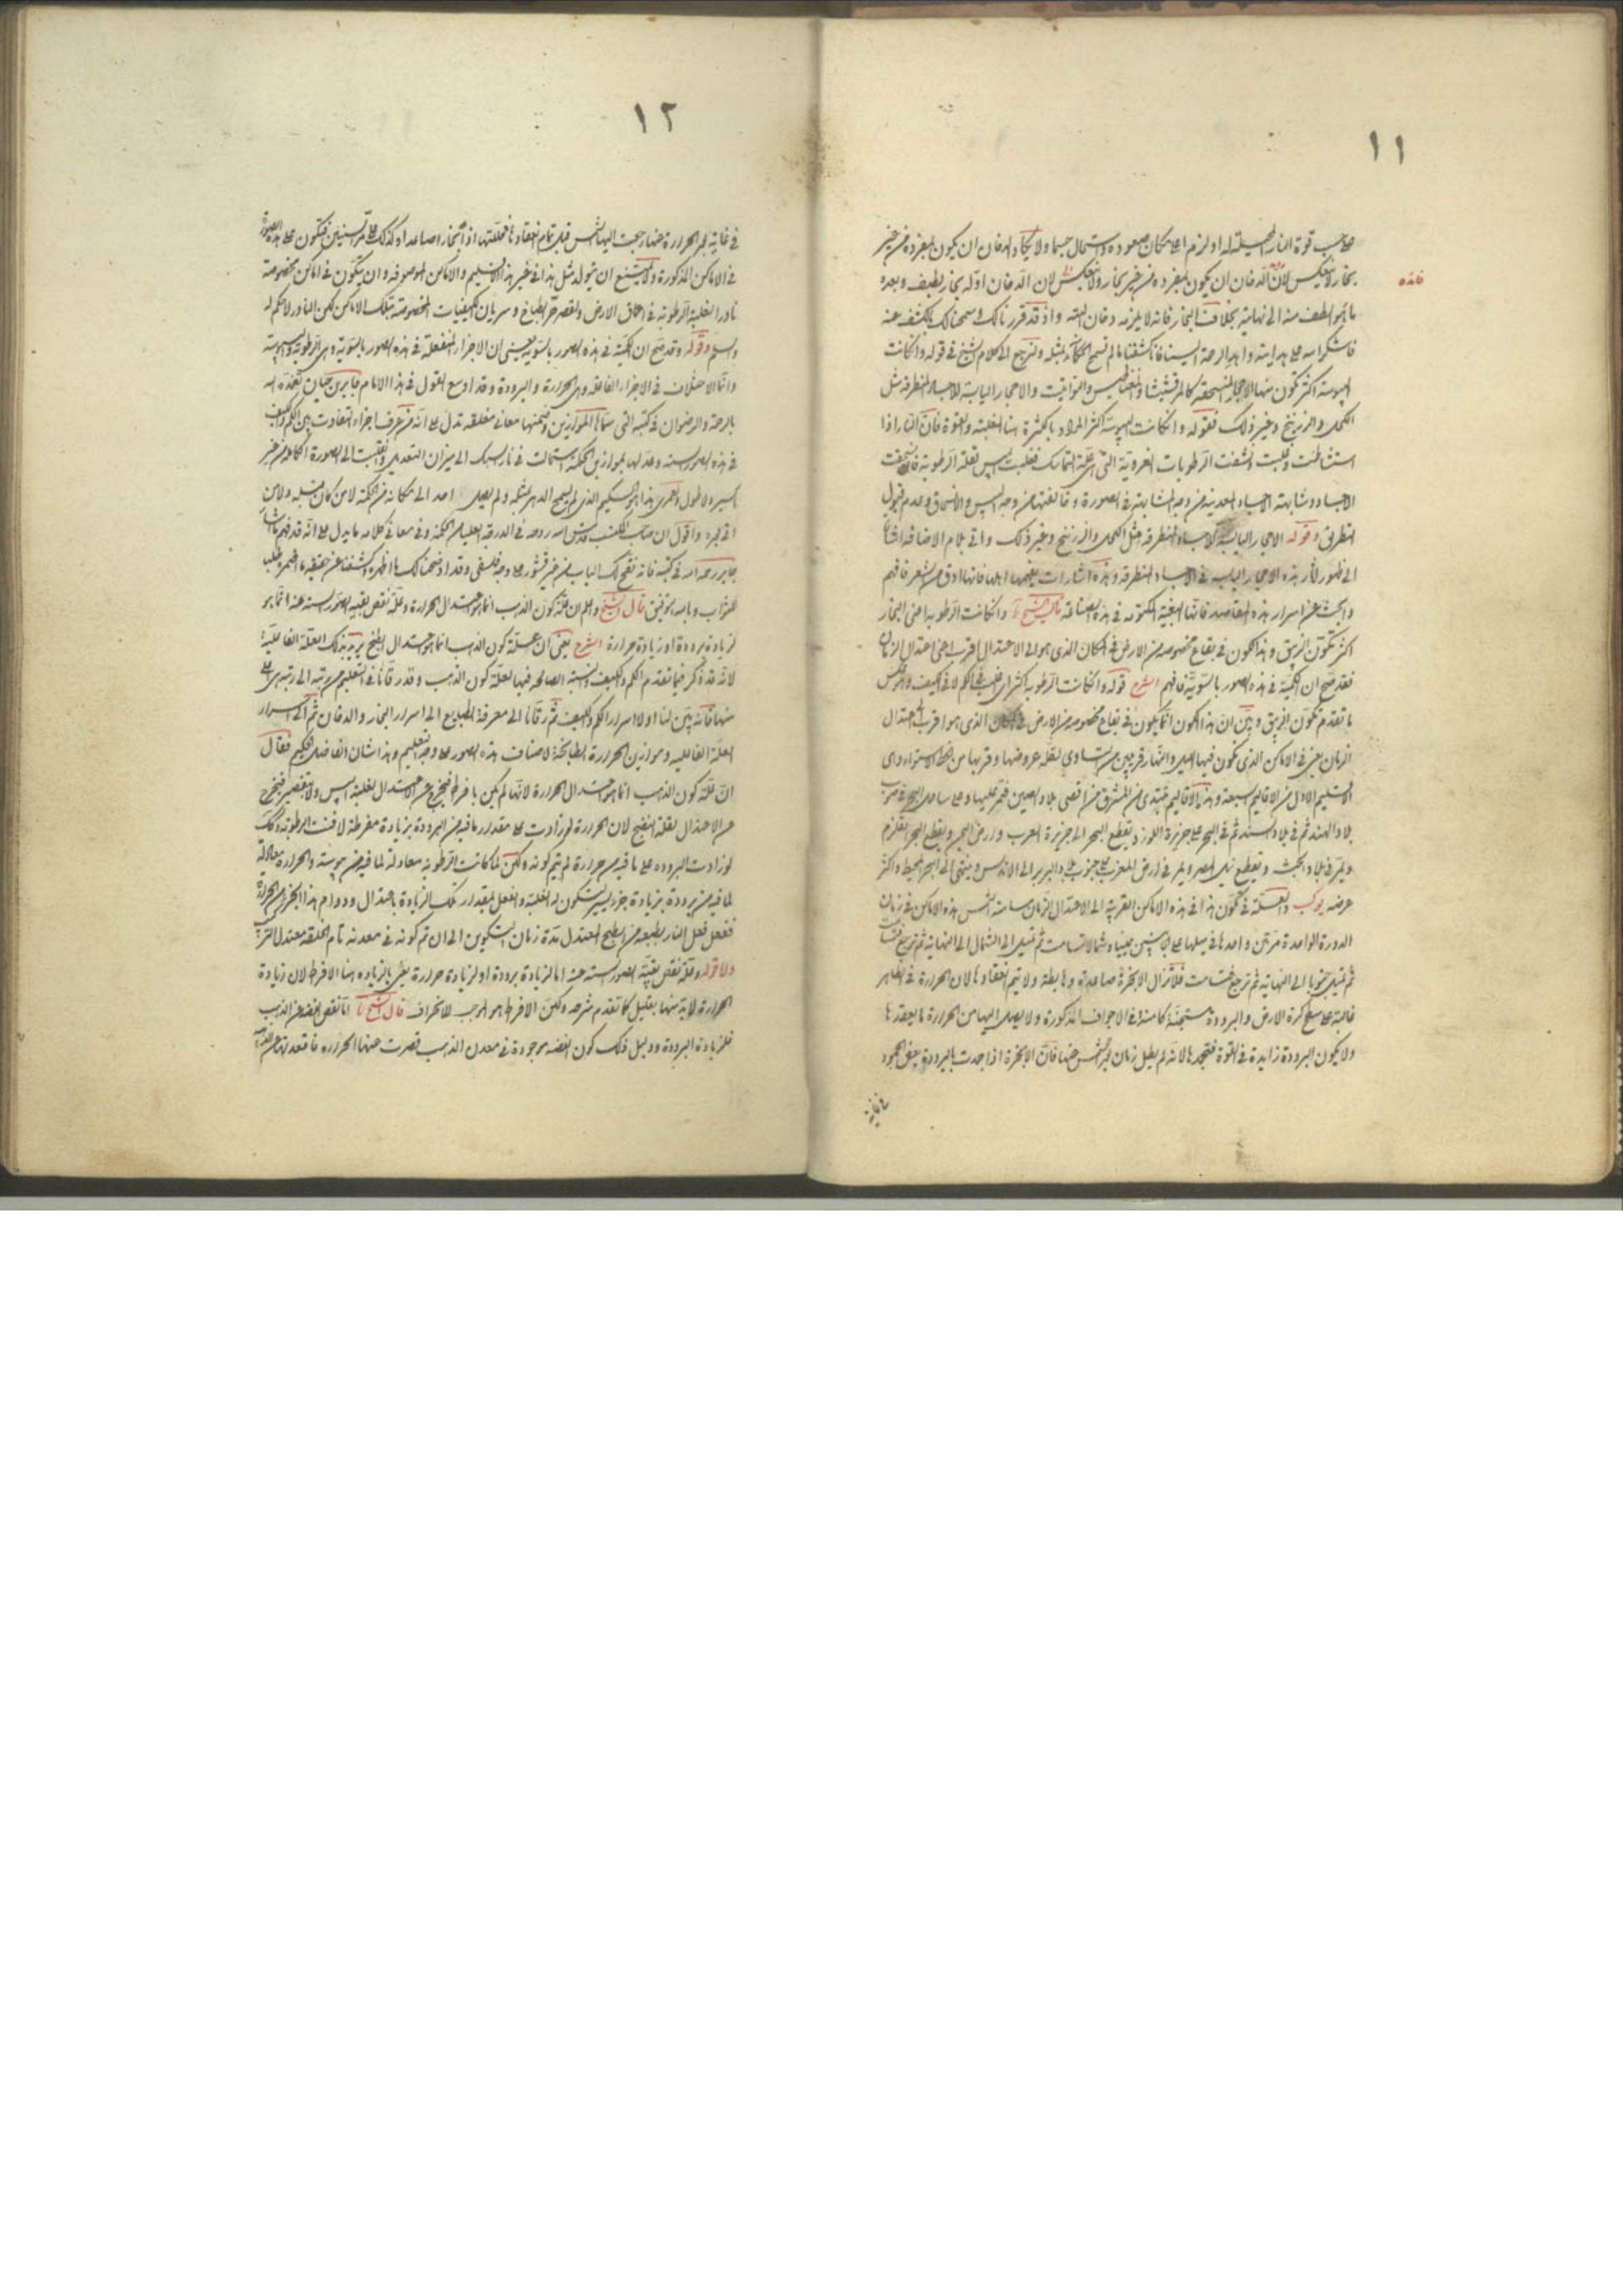 ١١
بحسب قوة النار المحيلة له او لزم اعلا مكان صعوده واستحال جسما ولا يكاد الدخان ان يكون بمفرده من غير
بخار ولا ينعكس لان الدخان ان يكون بمفرده من غير بخار ولا ينعكس لان الدخان اوله بخار لطيف وبعده
فائده
ما هو الطف منه الى نهايته بخلاف البخار فانه لا يلزمه دخان البته واذ قد قررنا لك وسمحنا لك بكشف عنه
فاشكر الله على هدايته واهد الرحمة الينا فانا كشفنا ما لم تسمح الحكماء بمثله ولنرجع الى كلام الشيخ في قوله وان كانت
اليبوسة اكثر تكون منها الاحجار المنسحقة كالمرقشيثا والمغنيطيس واليواقيت والاحجار اليابسة للاجساد المنطرقة مثل
الكحل والزرنيخ وغير ذلك فقوله وان كانت اليبوسة اكثر المراد بالكثرة هنا الغلبة والقوة فان النار اذا
استشاطت وغلبت ونشفت الرطوبات الغروية التي هي علة التماسك فغلبت اليبس لقلة الرطوبة
الاجساد وشابهته الاجساد المعدنية من وجه المشابهة في الصورة وخالفتها من وجه اليبس والانسحاق وعدم قبول
التطريق وقوله الاحجار اليابسة للاجساد المنطرقة مثل الكحل والزرنيخ وغير ذلك واتى بلام الاضافة اشارة
الى ظهور اثار هذه الاحجار اليابسة في الاجساد المنطرقة وهذه اشارات يفهمها اهلها فانها ادق من الشعر فافهم
وابحث عن اسرار هذه المقاصد فانها الغيبة المكتومة في هذه الصناعة قال الشيخ وان كانت الرطوبة اعني البخار
اكثر تكون الزيبق وهذا يكون في بقاع مخصوصة من الارض في المكان الذي هو الى الاعتدال اقرب اعني اعتدال الزمان
فقد صح ان الكمية في هذه الصور بالسوية فافهم الشرح قوله وان كانت الرطوبة اكثر اي اغلب في الكم لا في الكيف
ما تقدم تكون الزيبق وبين ان هذا الكون انما يكون في بقاع مخصوصة من الارض في المكان الذي هو اقرب الى اعتدال
الزمان يعني في الاماكن الذي يكون فيها الليل والنهار قريبين من التساوي لقلة عروضها وقربها من خط الاستواء وهي
الاقليم الاول من الاقاليم السبعة وهذه الاقاليم تبتدي من المشرق من اقصى بلاد الصين فتمر عليها وعلى ساحل البحر في جنوب
بلاد الهند ثم في بلاد السند ثم في البحر على جزيرة اللوز ويقطع البحر الى جزيرة العرب وارض اليمن ويقطع بحر القلزم
ويمر في بلاد الحبش ويقطع نيل مصر ويمر في ارض المغرب على جنوب بلاد البربر الى الاندلس وينتهي الى البحر المحيط واكثر
عرضه والعلة في تكون هذا في هذه الاماكن القريبة الى الاعتدال الزمان مسامتة الشمس هذه الاماكن في زمان
الدورة الواحدة مرتين واحدها في ميلها على يمينا وشمالا تسامت ثم تميل الى الشمال الى النهاية ثم ترجع
ثم تميل جنوبا الى النهاية ثم ترجع فتسامت فلا تزال الابخرة صاعدة وهابطة ولا يتم انعقادها لان الحرارة في الظاهر
غالبة على سطح كرة الارض والبرودة مستجنة كامنة في الاجواف المذكورة ولا يصل اليها من الحرارة ما يعقدها
ولا يكون البرودة زايدة في القوة فتجمدها لانه لم يطل زمان الشمس عنها فان الابخرة اذا جمدت بالبرودة بعض الجمود
في غاية
١٢
في غاية الحرارة عنها رجعت اليها الشمس قبل تمام انعقادها فحللتها اذا بخارا صاعدا وكذلك على مر السنين فيتكون على هذه الصورة
في الاماكن المذكورة ولا يمتنع ان يتولد مثل هذا في غير هذا الاقليم والاماكن الموصوفة وان يتكون في اماكن مخصوصة
نادرا لغلبة الرطوبة في اعماق الارض ولقصر حر الطباخ وسريان الكيفيات المخصوصة بتلك الاماكن لكن النادر لا حكم له
واسلم وقوله وقد صح ان الكمية في هذه الصور بالسوية يعني ان الاجزاء المنفعلة في هذه الصور بالسوية وهي الرطوبة واليبوسة
وانما الاختلاف في الاجزاء الفاعلة وهي الحرارة والبرودة وقد اوسع القول في هذا الامام جابر بن حيان تغمده الله
بالرحمة والرضوان في كتبه التي سماها الموازين وضمنها معاني مغلقة تدل على انه من عرف اجزاء التفاوت بين الكم والكيف
في هذه الصور الستة وعدلها بموازين الحكمة استحالت في نار السبك الى ميزان التعديل وانقلبت الى الصورة الكاملة من غير
اكسير ولا طول ولعمري هذا هو الحكيم الذي لم يسمح الدهر بمثله ولم يصل احد الى مكانه من الحكمة لا من كان قبله ولا من
اتى بعده واقول ان صاحب المكتسب قدس الله روحه في الدرجة العليا من الحكمة وفي معاني كلامه ما يدل على انه قد فهم
جابر رحمه الله في كتبه فانه نقح لك الباب من غير قشور على وجه فلسفي وقد اوضحنا لك ما اظهره وكشفنا عن حقيقة ما اضمره
للثواب وبالله التوفيق قال الشيخ واعلم ان علة كون الذهب انما هو اعتدال الحرارة وعلة نقص بقية الصور الستة عنه انما هو
لزيادة برودة او زيادة حرارة الشرح يعني ان علة كون الذهب انما هو اعتدال الطبخ يريد بذلك العلة الفاعلية
لانه قد ذكر فيما تقدم الكم والكيف والنسبة الصالحة فيها لعلة كون الذهب وقد رقانا في التعليم من رتبة الى رتبة هي اعلى
منها فانه بين لنا اولا اسرار الكم والكيف ثم رقانا الى معرفة الطبايع الى اسرار البخار والدخان ثم الى اسرار
العلة الفاعلية وموازين الحرارة الطابخة لاصناف هذه الصور على وجه التعليم وهذا شان الفاضل الحكيم فقال
ان علة كون الذهب انما هو اعتدال الحرارة لانها لم تكن بافراط فيخرج عن الاعتدال لغلبة اليبس ولا بتقصير فيخرج
عن الاعتدال لقلة النضج لان الحرارة لو زادت على مقدار ما فيه من البرودة بزيادة مفرطة لافنت الرطوبة وكذلك
لو زادت البرودة على ما فيه من حرارة لم يتم لونه ولكن لما كانت الرطوبة معادلة لما فيه من يبوسة والحرارة معادلة
لما فيه من برودة بزيادة جزء يسير لتكون له الغلبة والفعل بقدر تلك الزيادة باعتدال ودوام هذا الجزء من الحرارة
ففعل فعل النار بطبعه من الطبخ المعتدل مدة زمان التكوين الى ان تم كونه في معدنه تام الخلقة معتدل التركيب
واما قوله وعلة نقص بقية الصور الستة عنه اما لزيادة برودة او لزيادة حرارة يعني بالزيادة هنا الافراط لان زيادة
الحرارة لا بد منها بقليل كما تقدم شرحه ولكن الافراط هو الموجب للانحراف قال الشيخ اما نقص الفضة عن الذهب
فلزيادة البرودة ودليل ذلك كون الفضة موجودة في معدن الذهب قصرت عنها الحرارة